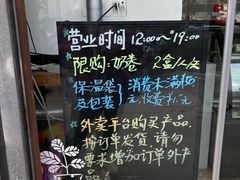 营业时间 12:00~19:00
限购:奶卷 2盒/人
保温袋及包装}消费未满
元,收费
外卖平台购买产品,
按订单发货,请勿
要求增加订单外产
品